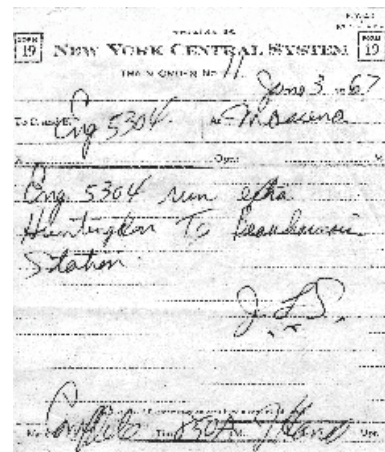 FORM 19 NEW YORK CENTRAL SYSTEM FORM 19
TRAIN ORDER No. 11
3 1967
To C. and E. Eng 5304 At Massena
Opr.
Eng 5304 run extra
Huntingdon To Beauharnois
Station
Made Complete Time 850A M. Opr.